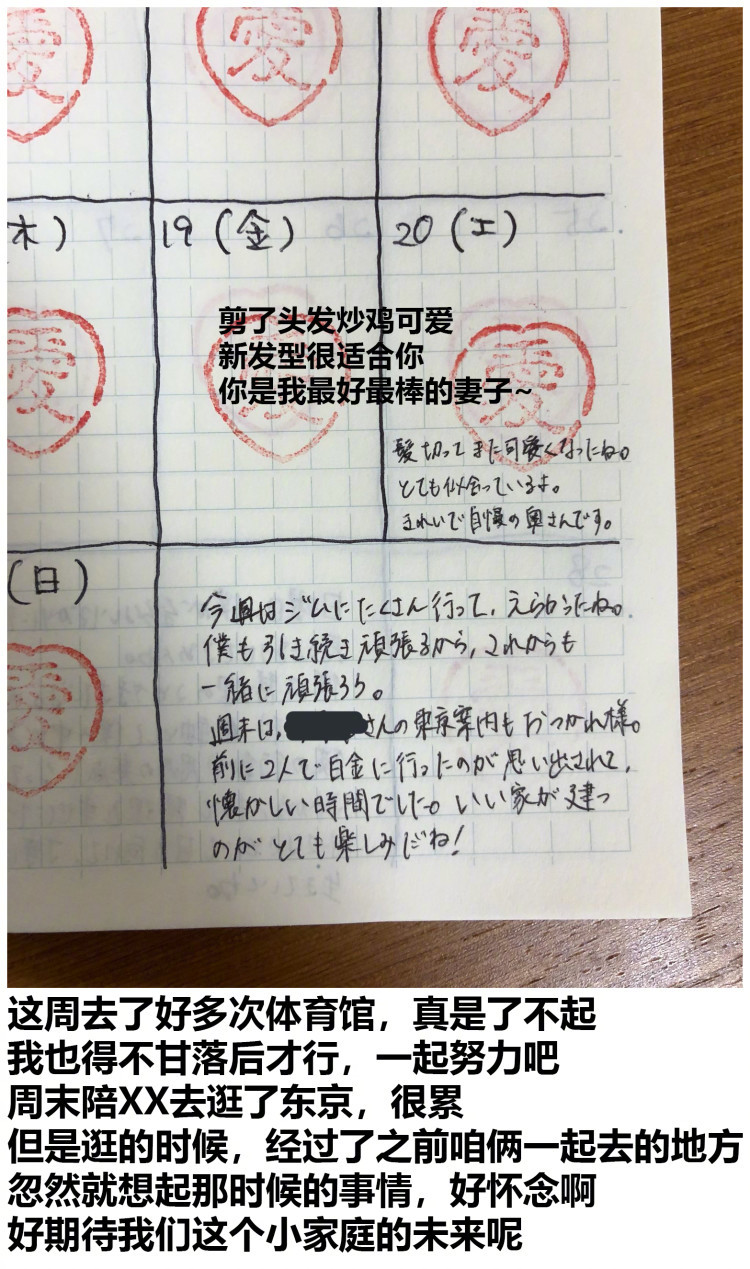 愛
愛
愛
木)
19(金)
20(土)
剪了头发炒鸡可爱
新发型很适合你
你是我最好最棒的妻子~
愛
愛
愛
髪切ってまた可愛くなったね。
とても似合っているよ。
きれいで自慢の奥さんです。
(日)
愛
今週はジムにたくさん行って、えらかったね。
僕も引き続き頑張るから、これからも
一緒に頑張ろう。
週末は、さんの東京案内もおつかれ様。
前に2人で白金に行ったのが思い出されて、
懐かしい時間でした。いい家が建つ
のがとても楽しみだね!
这周去了好多次体育馆，真是了不起
我也得不甘落后才行，一起努力吧
周末陪XX去逛了东京，很累
但是逛的时候，经过了之前咱俩一起去的地方
忽然就想起那时候的事情，好怀念啊
好期待我们这个小家庭的未来呢